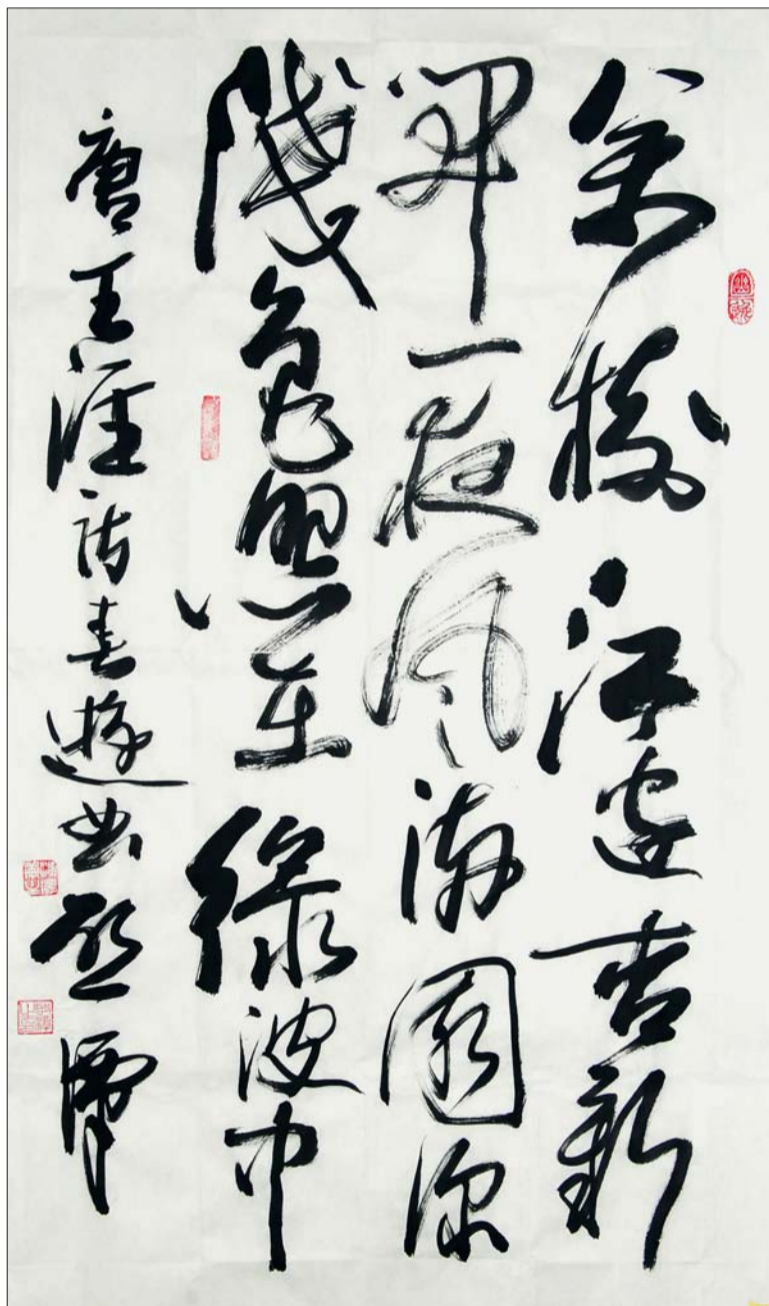 萬樹江邊杏新
開一夜風滿園深
淺色照在綠波中
唐王涯詩春遊曲